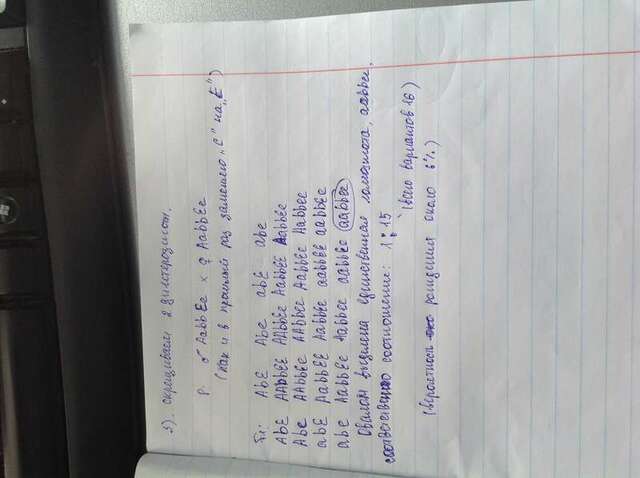 2). скрещиваем 2 дигетерозигот.
P. ♂ AabbEe x ♀ AabbEe
(как и в прошлый раз заменено "c" на "E")
F₁: AbE Abe abE abe
AbE AAbbEE AAbbEe AabbEE AabbEe
Abe AAbbEe AAbbee AabbEe Aabbee
abE AabbEE AabbEe aabbEE aabbEe
abe AabbEe Aabbee aabbEe aabbee
Овалом выделена единственная гомозигота, aabbee.
соответственно соотношение: 1:15
(всего вариантов 16)
(вероятность рождения около 6%)